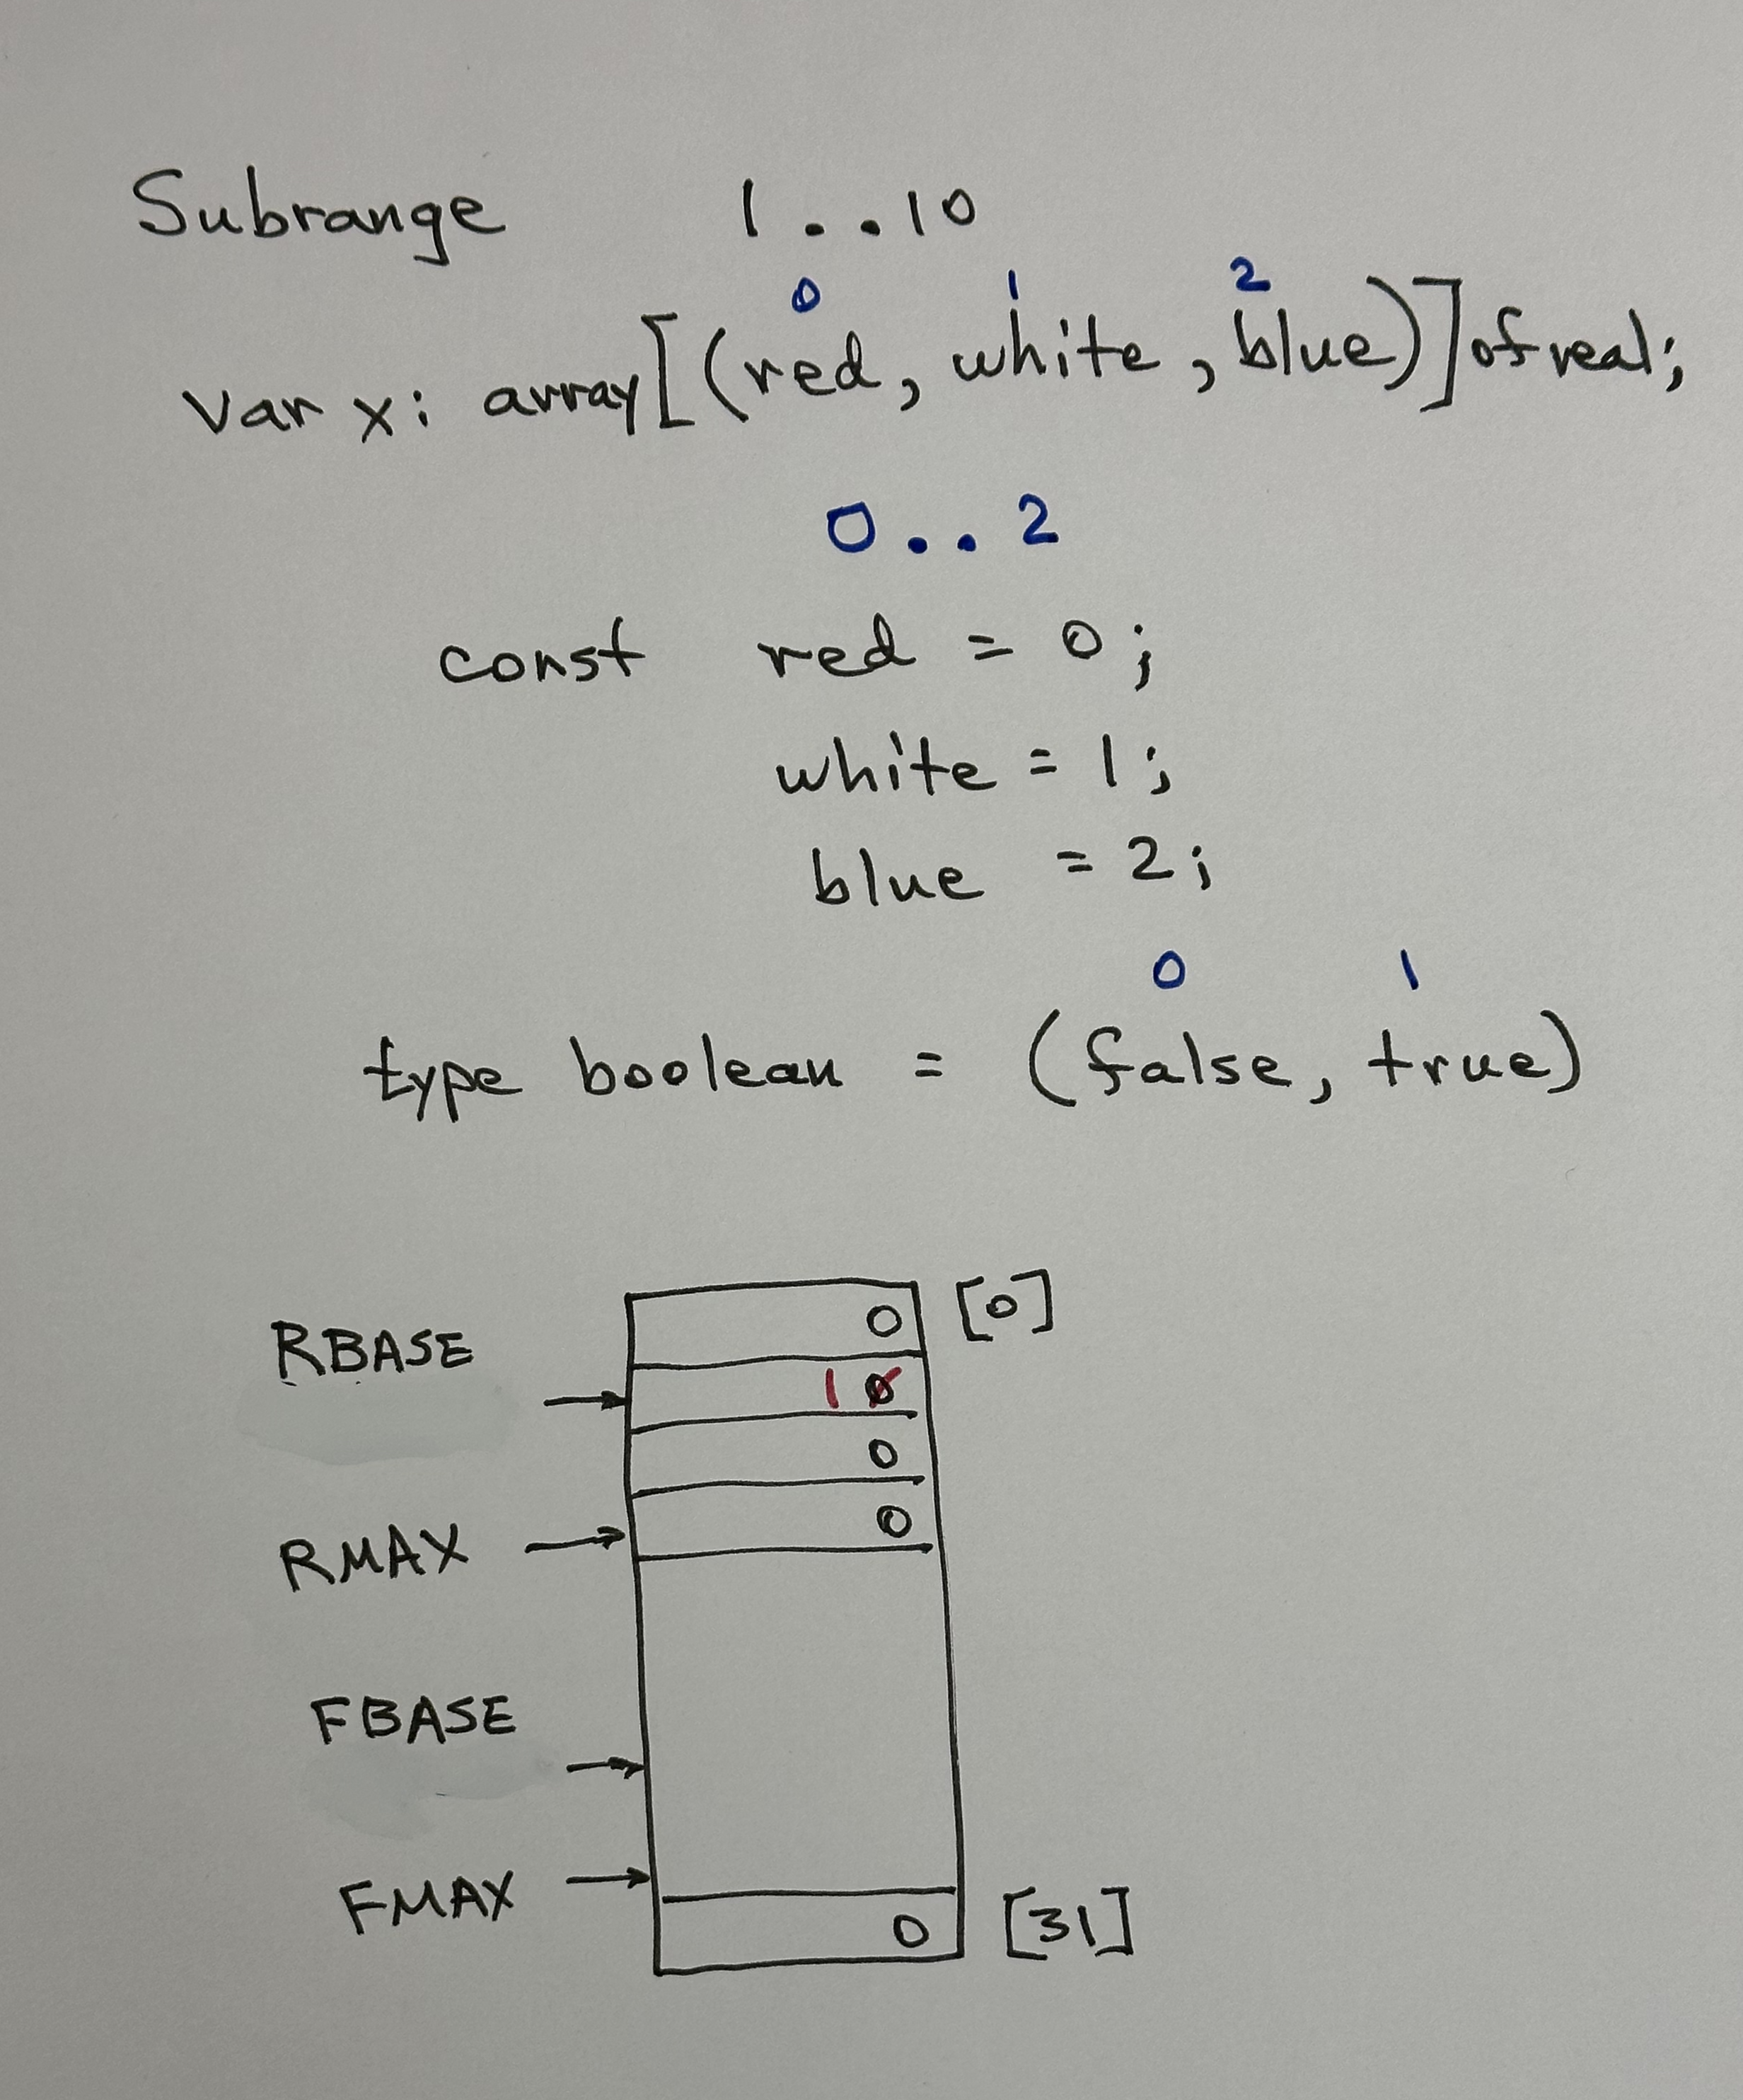 Subrange 1..10
0 1 2
var x: array[(red, white, blue)] of real;
0..2
const red = 0;
white = 1;
blue = 2;
0 1
type boolean = (false, true)
0 [0]
RBASE
1 0
0
RMAX 0
FBASE
FMAX
0 [31]